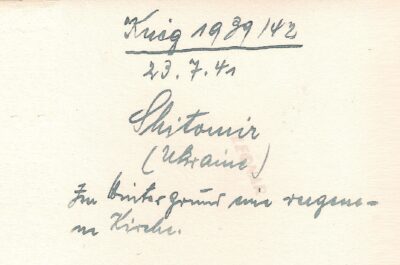 Krieg 1939/42
23.7.41
Shitomir
(Ukraine)
Im Hintergrund eine
Kirche.